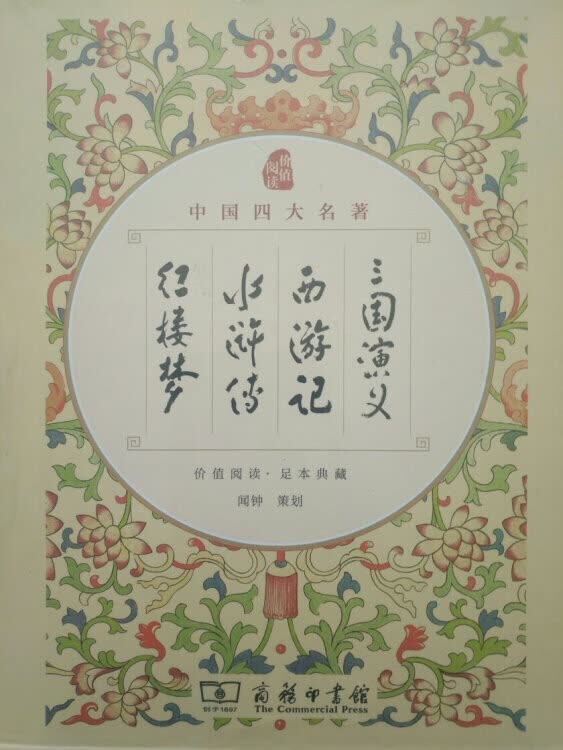 价值阅读
中国四大名著
三国演义
西游记
水浒传
红楼梦
价值阅读·足本典藏
闻钟 策划
创于1897
商务印书馆
The Commercial Press